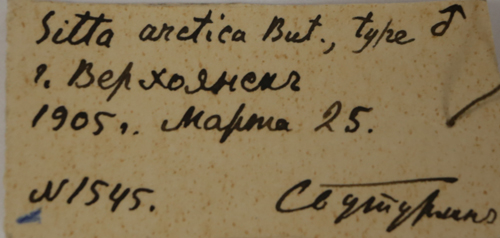 Sitta arctica But., type ♂
г. Верхоянскъ
1905 г. Марта 25.
N 1545.
СБутурлинъ